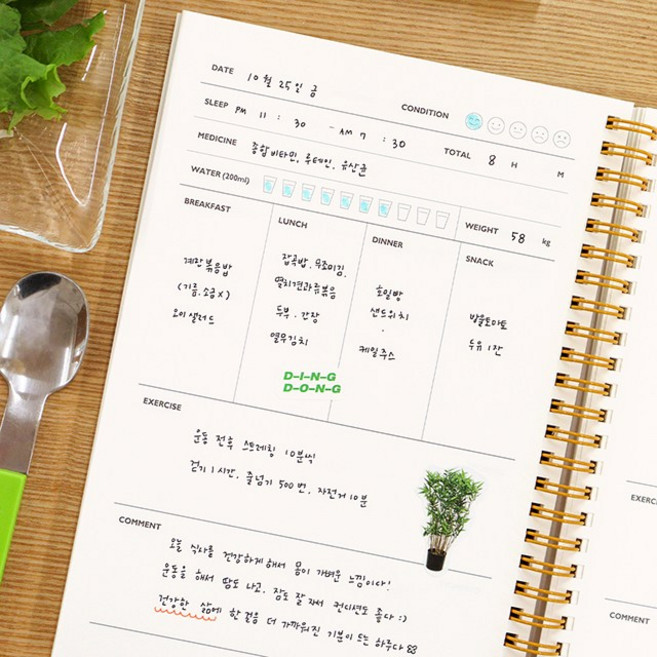 DATE 10월 25일 금
CONDITION
SLEEP PM 11 : 30 - AM 7 : 30 TOTAL 8 H M
MEDICINE 종합비타민, 루테인, 유산균
WATER (200ml)
WEIGHT 58 kg
BREAKFAST
계란볶음밥
(기름, 소금 X)
오이샐러드
LUNCH
잡곡밥, 무조미김,
멸치견과류볶음
두부, 간장
열무김치
DINNER
호밀빵
샌드위치
케일주스
SNACK
방울토마토
두유 1잔
D-I-N-G
D-O-N-G
EXERCISE
운동 전후 스트레칭 10분씩
걷기 1시간, 줄넘기 500번, 자전거 10분
COMMENT
오늘 식사를 건강하게 해서 몸이 가벼운 느낌이다!
운동을 해서 땀도 나고, 잠도 잘 자서 컨디션도 좋다 :)
건강한 삶에 한 걸음 더 가까워진 기분이 드는 하루다
EXERCISE
COMMENT